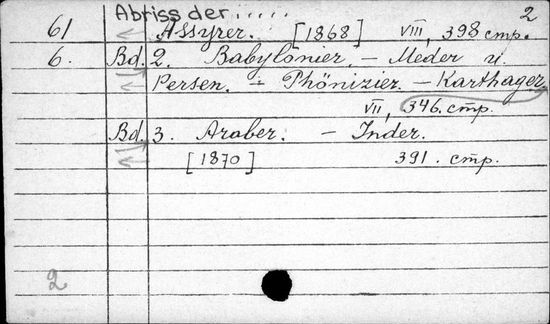 Abriss der.....
2
61 Assyrer. [1868] VIII, 398 стр.
6. Bd. 2. Babylonier. – Meder u.
Persen. – Phönizier. – Karthager.
VII, 346. стр.
Bd. 3. Araber. – Inder.
[1870] 391. стр.
2